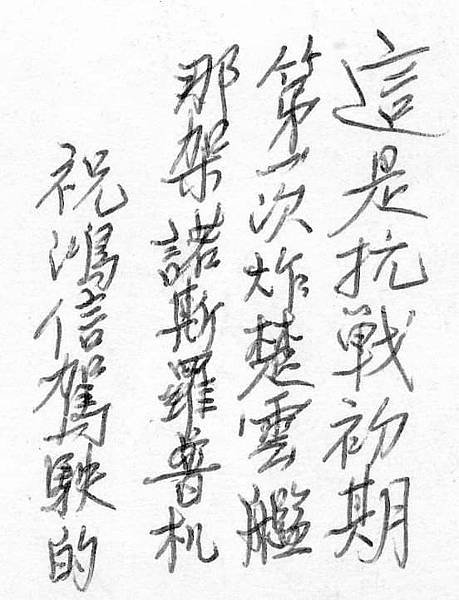 這是抗戰初期
第一次炸楚雲艦
那架諾斯羅普机
祝鴻信駕駛的